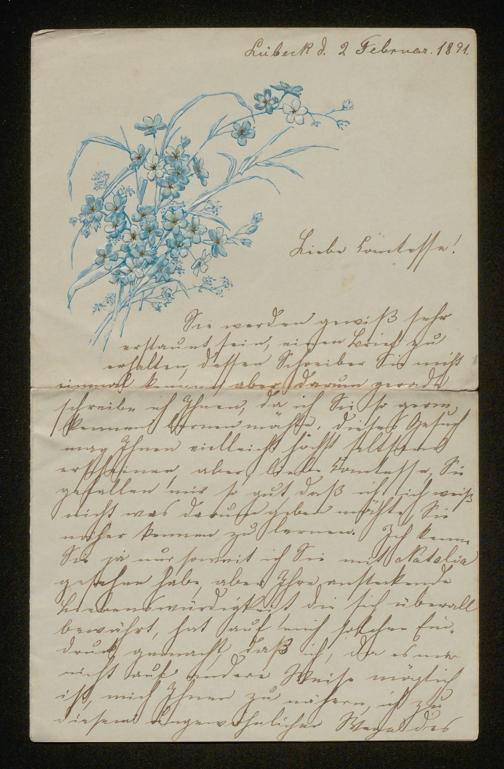 Lübeck d. 2 Februar. 1891.
Liebe Comtesse!
Sie werden gewiß sehr
erstaunt sein, einen Brief zu
erhalten, dessen Schreiber Sie nicht
einmal kennen aber darum gerade
schreibe ich Ihnen, da ich Sie so gern
kennen lernen möchte. Dieses Gesuch
mag Ihnen vielleicht höchst seltsam
erscheinen aber liebe Comtesse, Sie
gefallen mir so gut daß ich ich weiß
nicht was darum geben möchte Sie
näher kennen zu lernen. Ich kenne
Sie ja nur soweit ich Sie mit Natalie
gesehen habe, aber Ihre ansteckende
Liebenswürdigkeit die sich überall
bewährt, hat auf mich solchen Ein-
druck gemacht, daß ich, da es mir
nicht auf andere Weise möglich
ist, mich Ihnen zu nähern, ich zu
diesem ungewöhnlichen Wege des